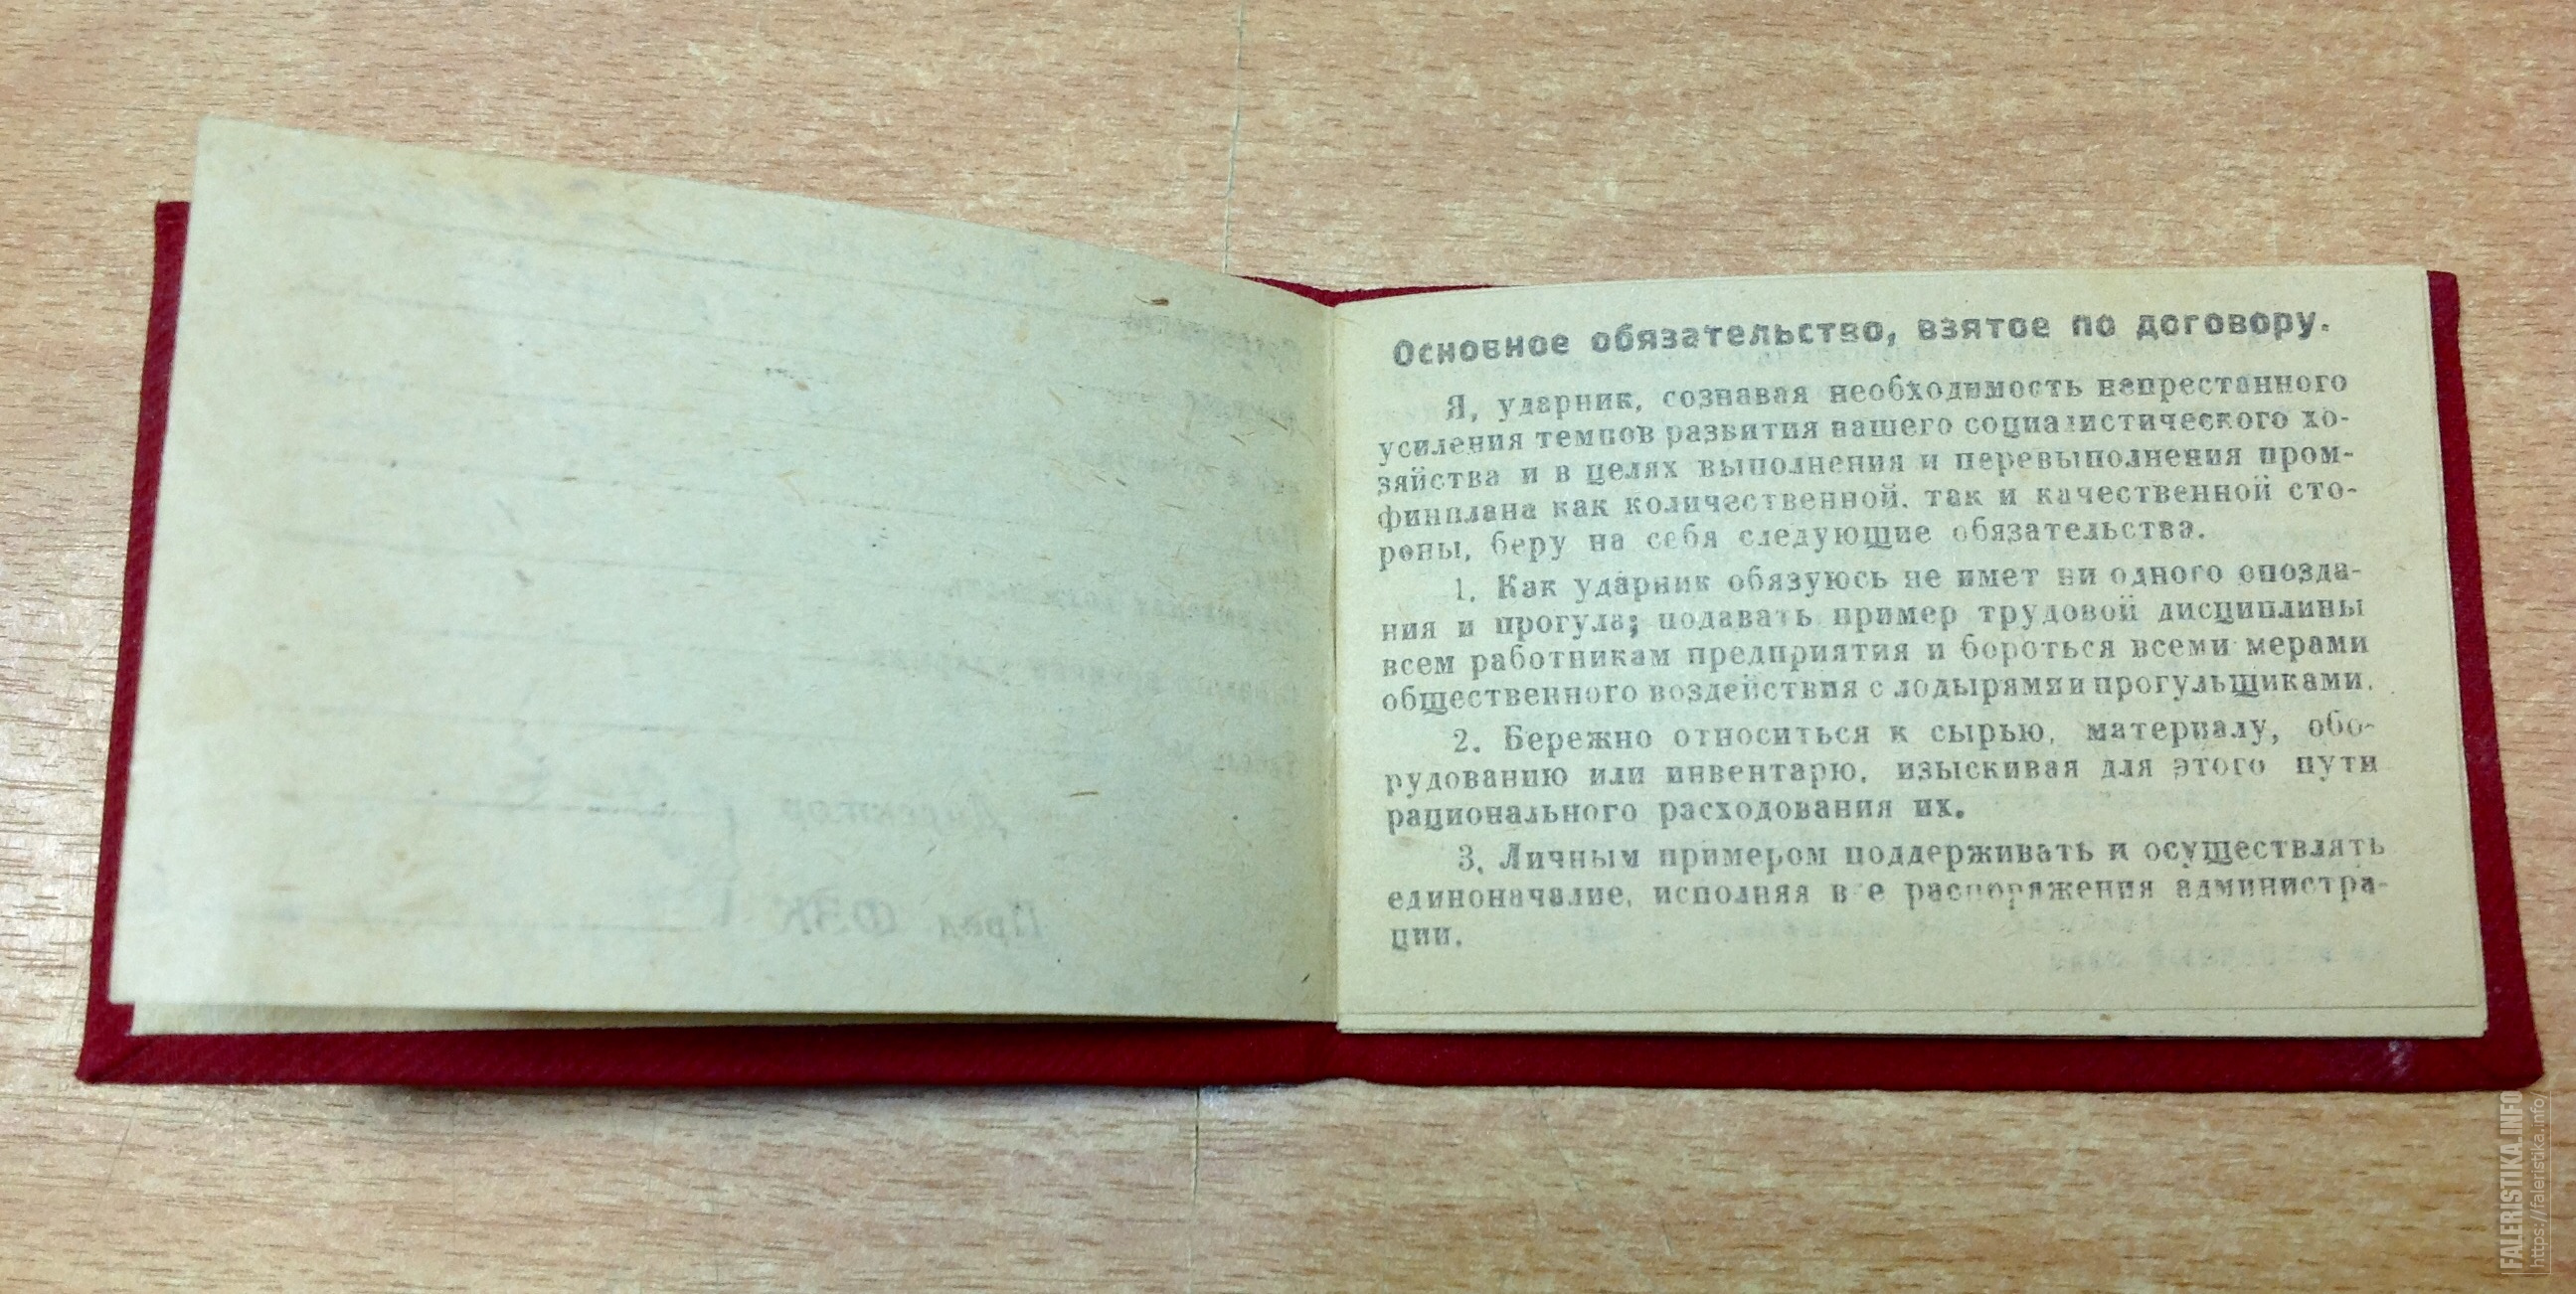 Основное обязательство, взятое по договору.
Я, ударник, сознавая необходимость непрестанного
усиления темпов развития нашего социалистического хо-
зяйства и в целях выполнения и перевыполнения пром-
финплана как количественной, так и качественной сто-
роны, беру на себя следующие обязательства.
1. Как ударник обязуюсь не имет ни одного опозда-
ния и прогула; подавать пример трудовой дисциплины
всем работникам предприятия и бороться всеми мерами
общественного воздействия с лодырями и прогульщиками.
2. Бережно относиться к сырью, материалу, обо-
рудованию или инвентарю, изыскивая для этого пути
рационального расходования их.
3. Личным примером поддерживать и осуществлять
единоначалие, исполняя все распоряжения администра-
ции.
Директор
Пред. ФЗК
FALERISTIKA.INFO
https://faleristika.info/